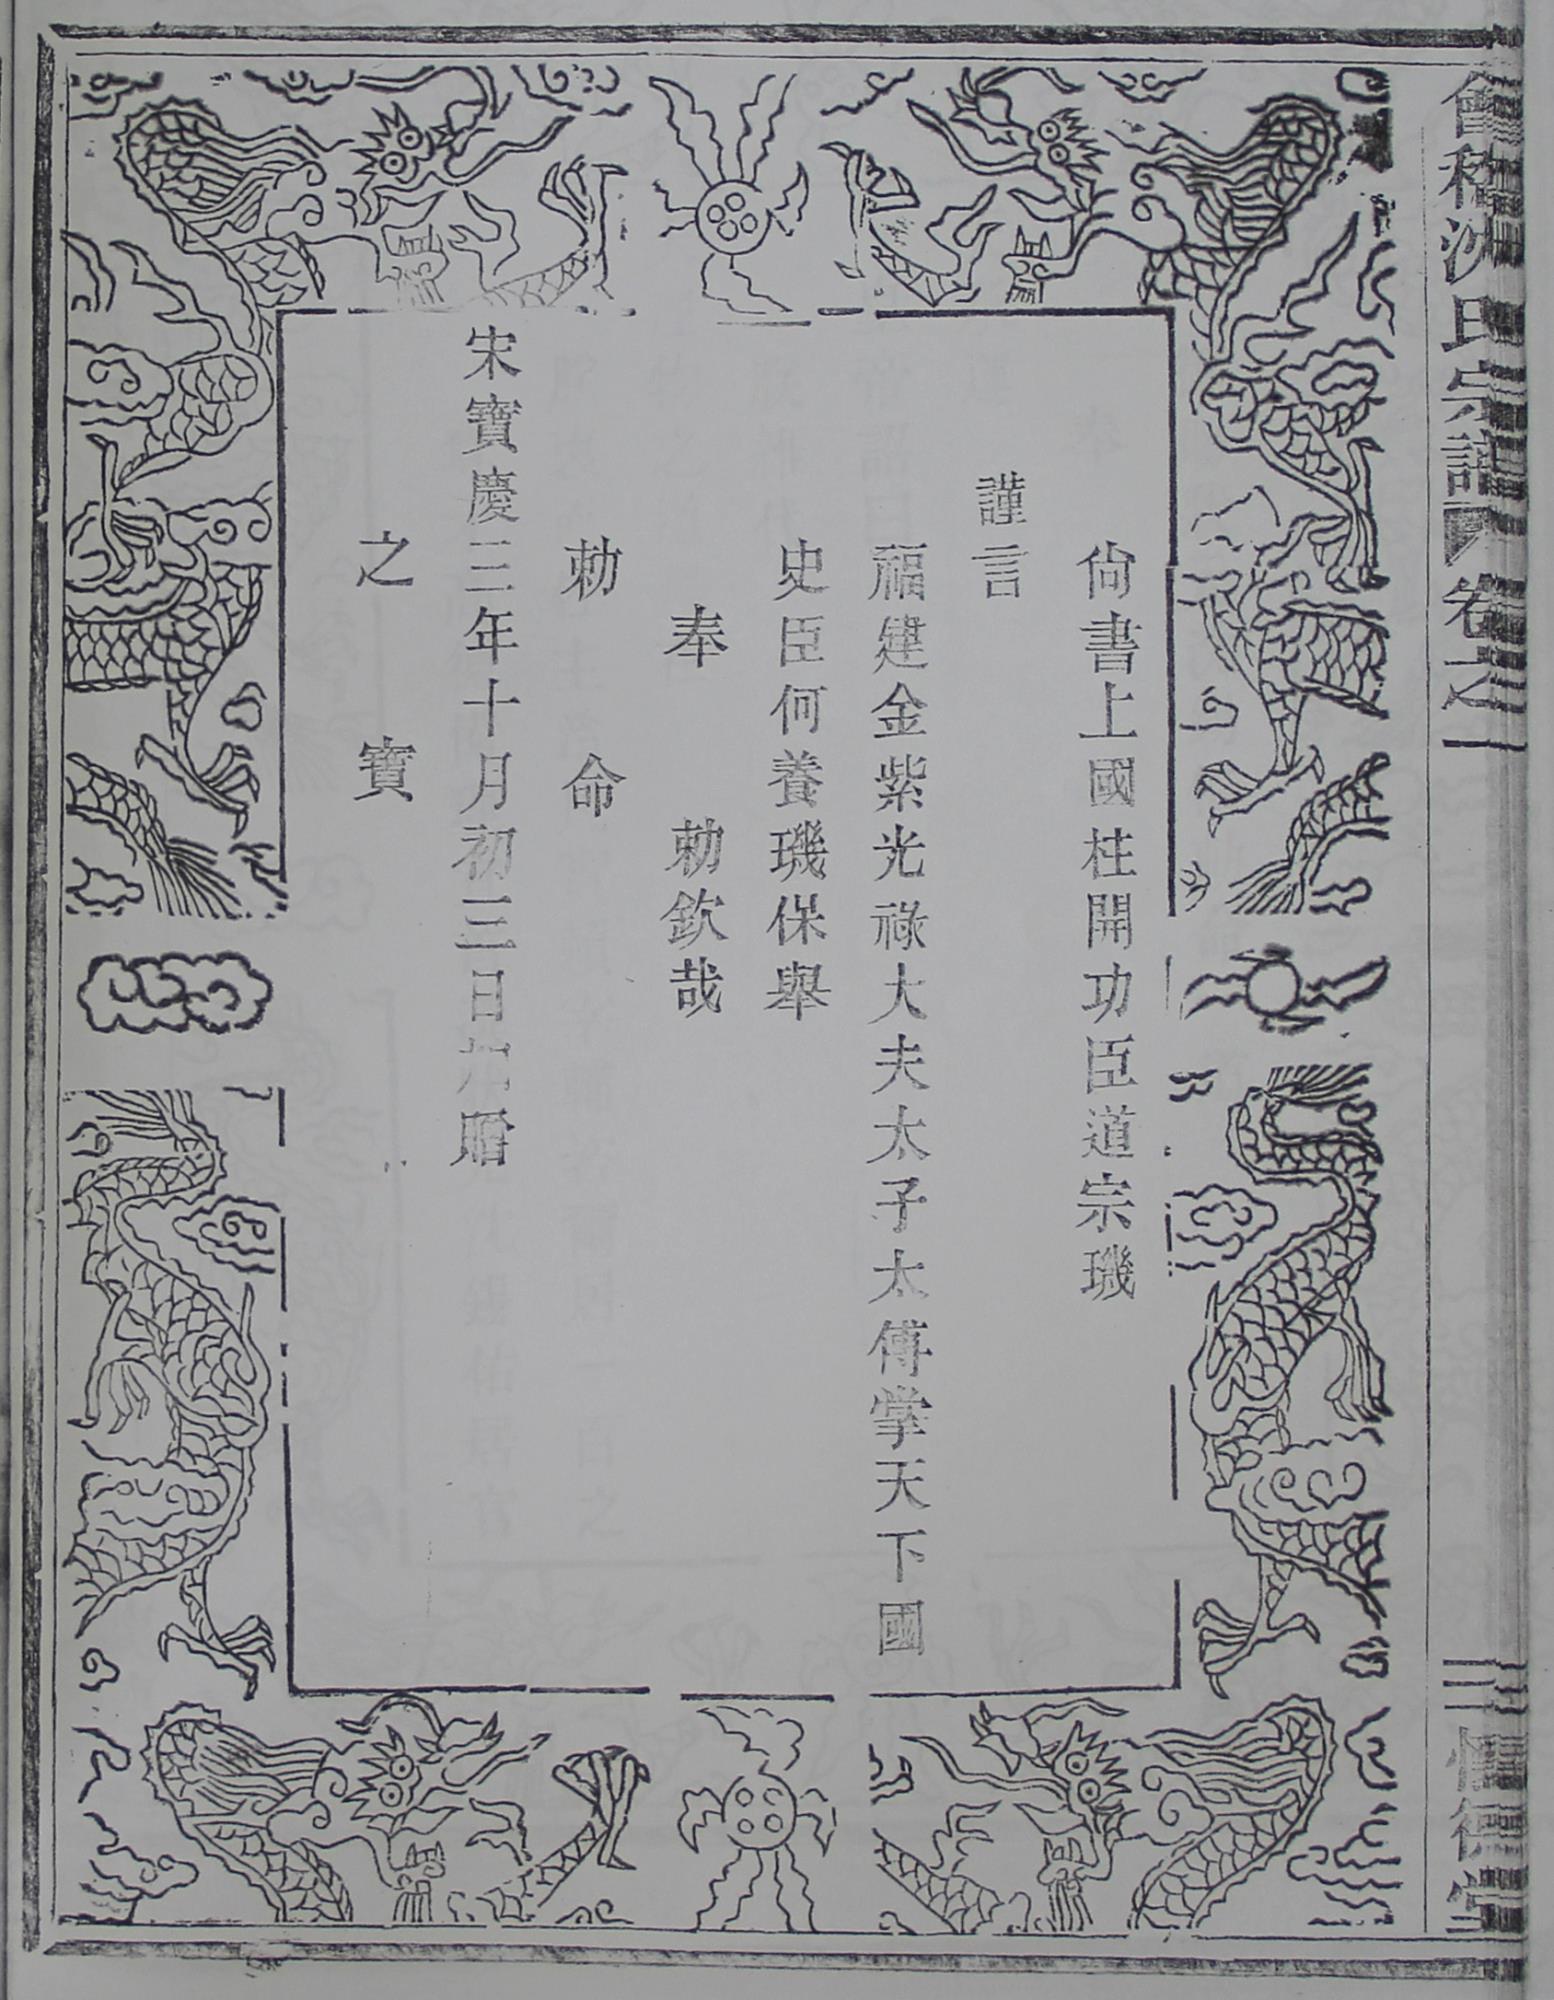 會稽沈氏宗譜 卷之一
尙書上國柱開功臣道宗璣
謹言
福建金紫光祿大夫太子太傅掌天下國
史臣何養璣保舉
奉 勅欽哉
勅命
宋寶慶三年十月初三日加贈
之寶
德堂